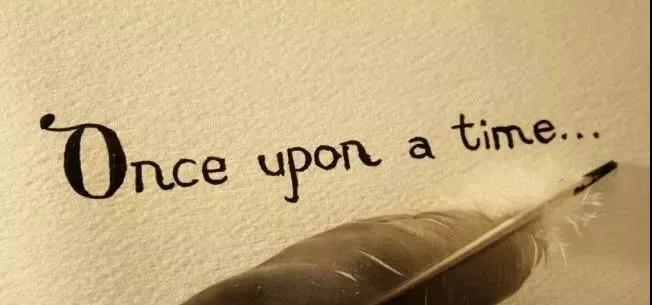 Once upon a time...